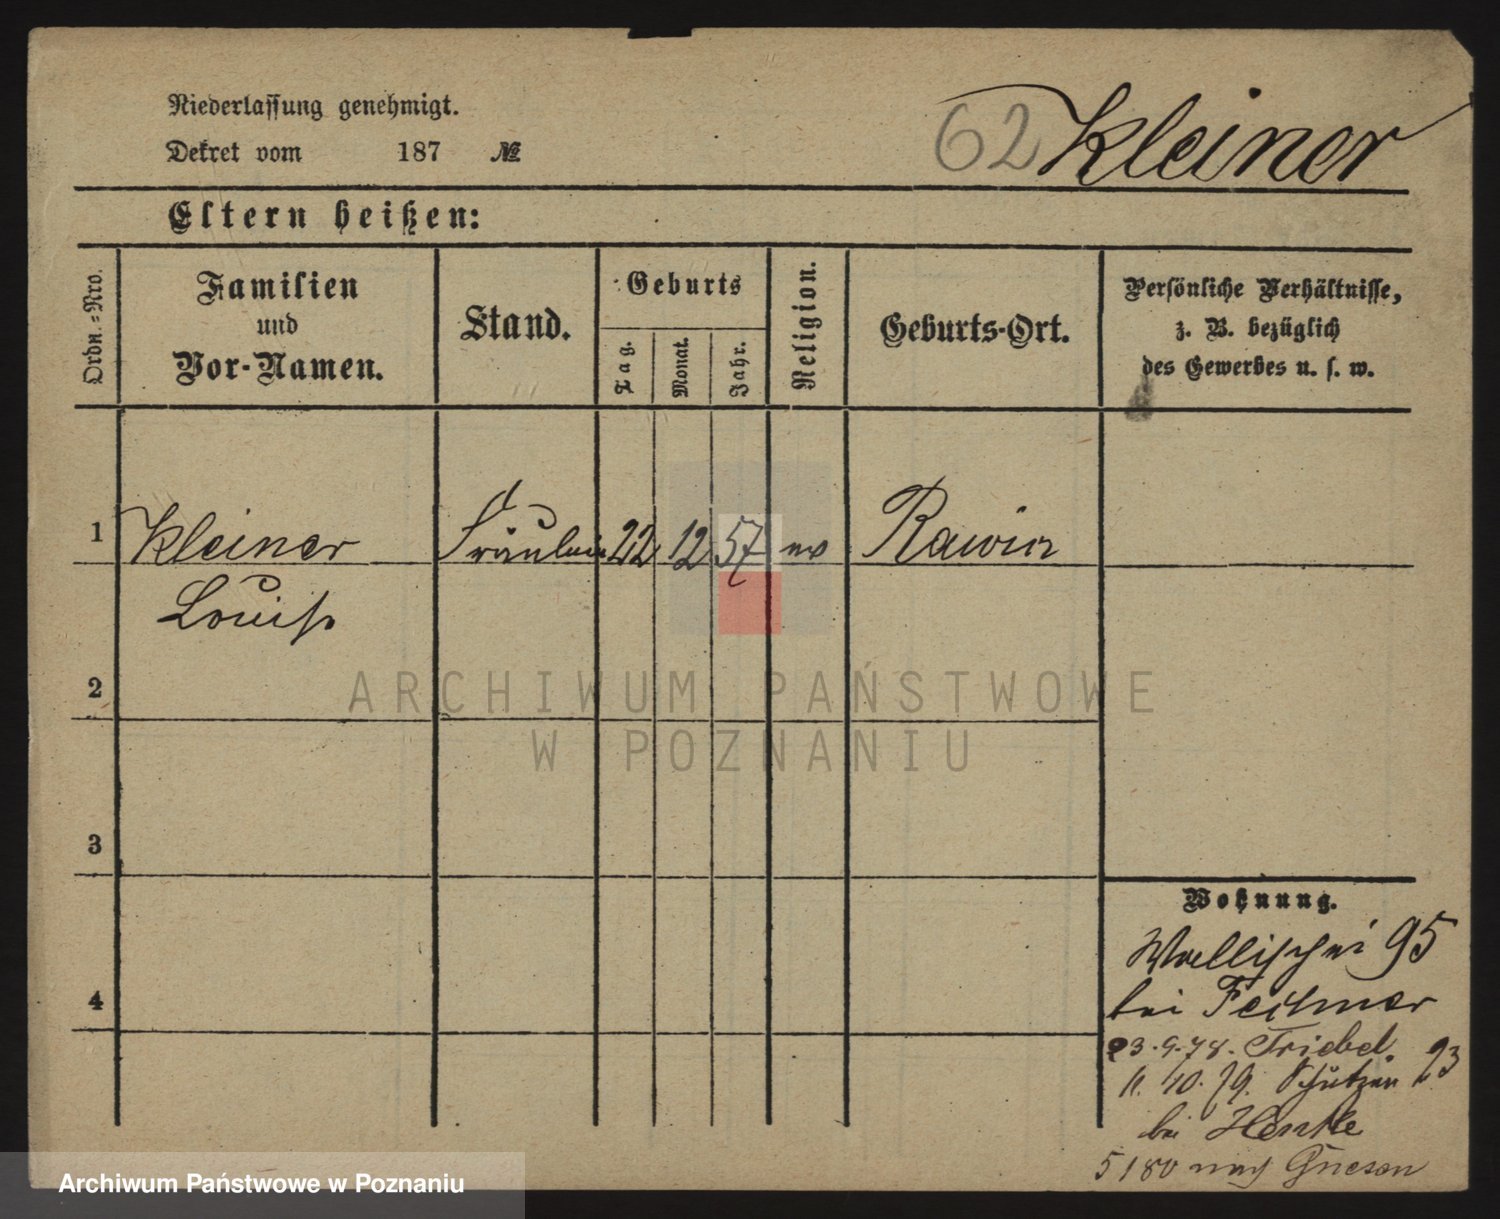 Niederlassung genehmigt.
Dekret vom 187 №
62 Kleiner
Eltern heißen:
Ordn.-Nro.
Familien
und
Vor-Namen.
Stand.
Geburts
Tag.
Monat.
Jahr.
Religion.
Geburts-Ort.
Persönliche Verhältnisse,
z. B. bezüglich
des Gewerbes u. s. w.
1 Kleiner Fräulein 22 12 57 ev Rawicz
Louise
2
3
4
Wohnung.
Wallischei 95
bei Fechner
23.9.78. Triebel
11. 10. 79. Schützen 23
bei Henke
5 1 80 nach Gnesen
ARCHIWUM PAŃSTWOWE
W POZNANIU
Archiwum Państwowe w Poznaniu